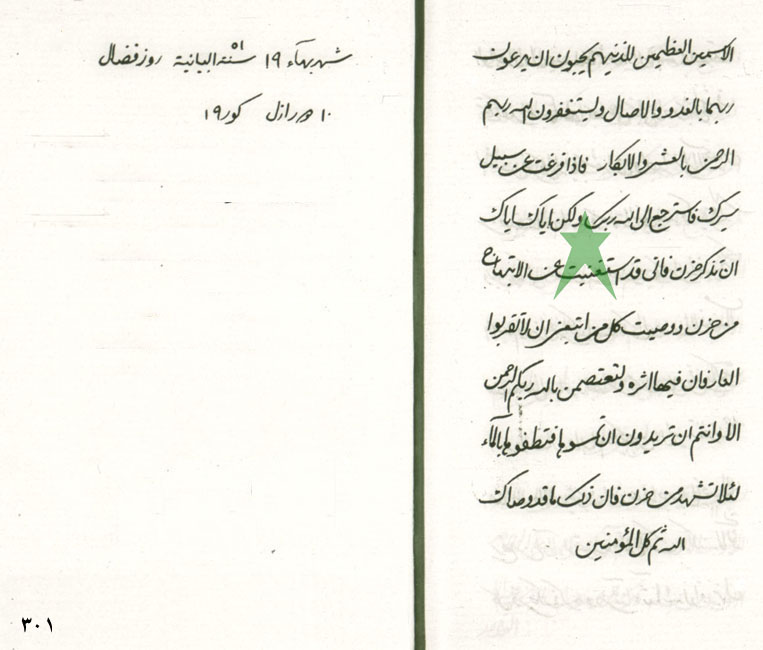 الاسمين العظيمين للذينهم يحيون ان يدعون
ربهما بالغدو والاصال وليستغفرون الله ربهم
الرحمن بالعشى والابكار فاذا فرغت عن سبيل
سيرك فاسترجع الى الله ربك ولكن اياك اياك
ان تذكر حزن فانى قد استغنيت عن الابتهاج
من حزن ووصيت كل من اتبعنى ان لا تقربوا
فيها اثره ولتعتصمن بالله ربكم الرحمن
الا وانتم ان تريدون ان فتطفوها بالماء
لئلا تشهد من حزن فان ذلك ما قد وصاك
الله ثم كل المؤمنين
شهر بهاء ١٩ سنة البيانية روز فضال
١٠ كور ١٩
٣٠١